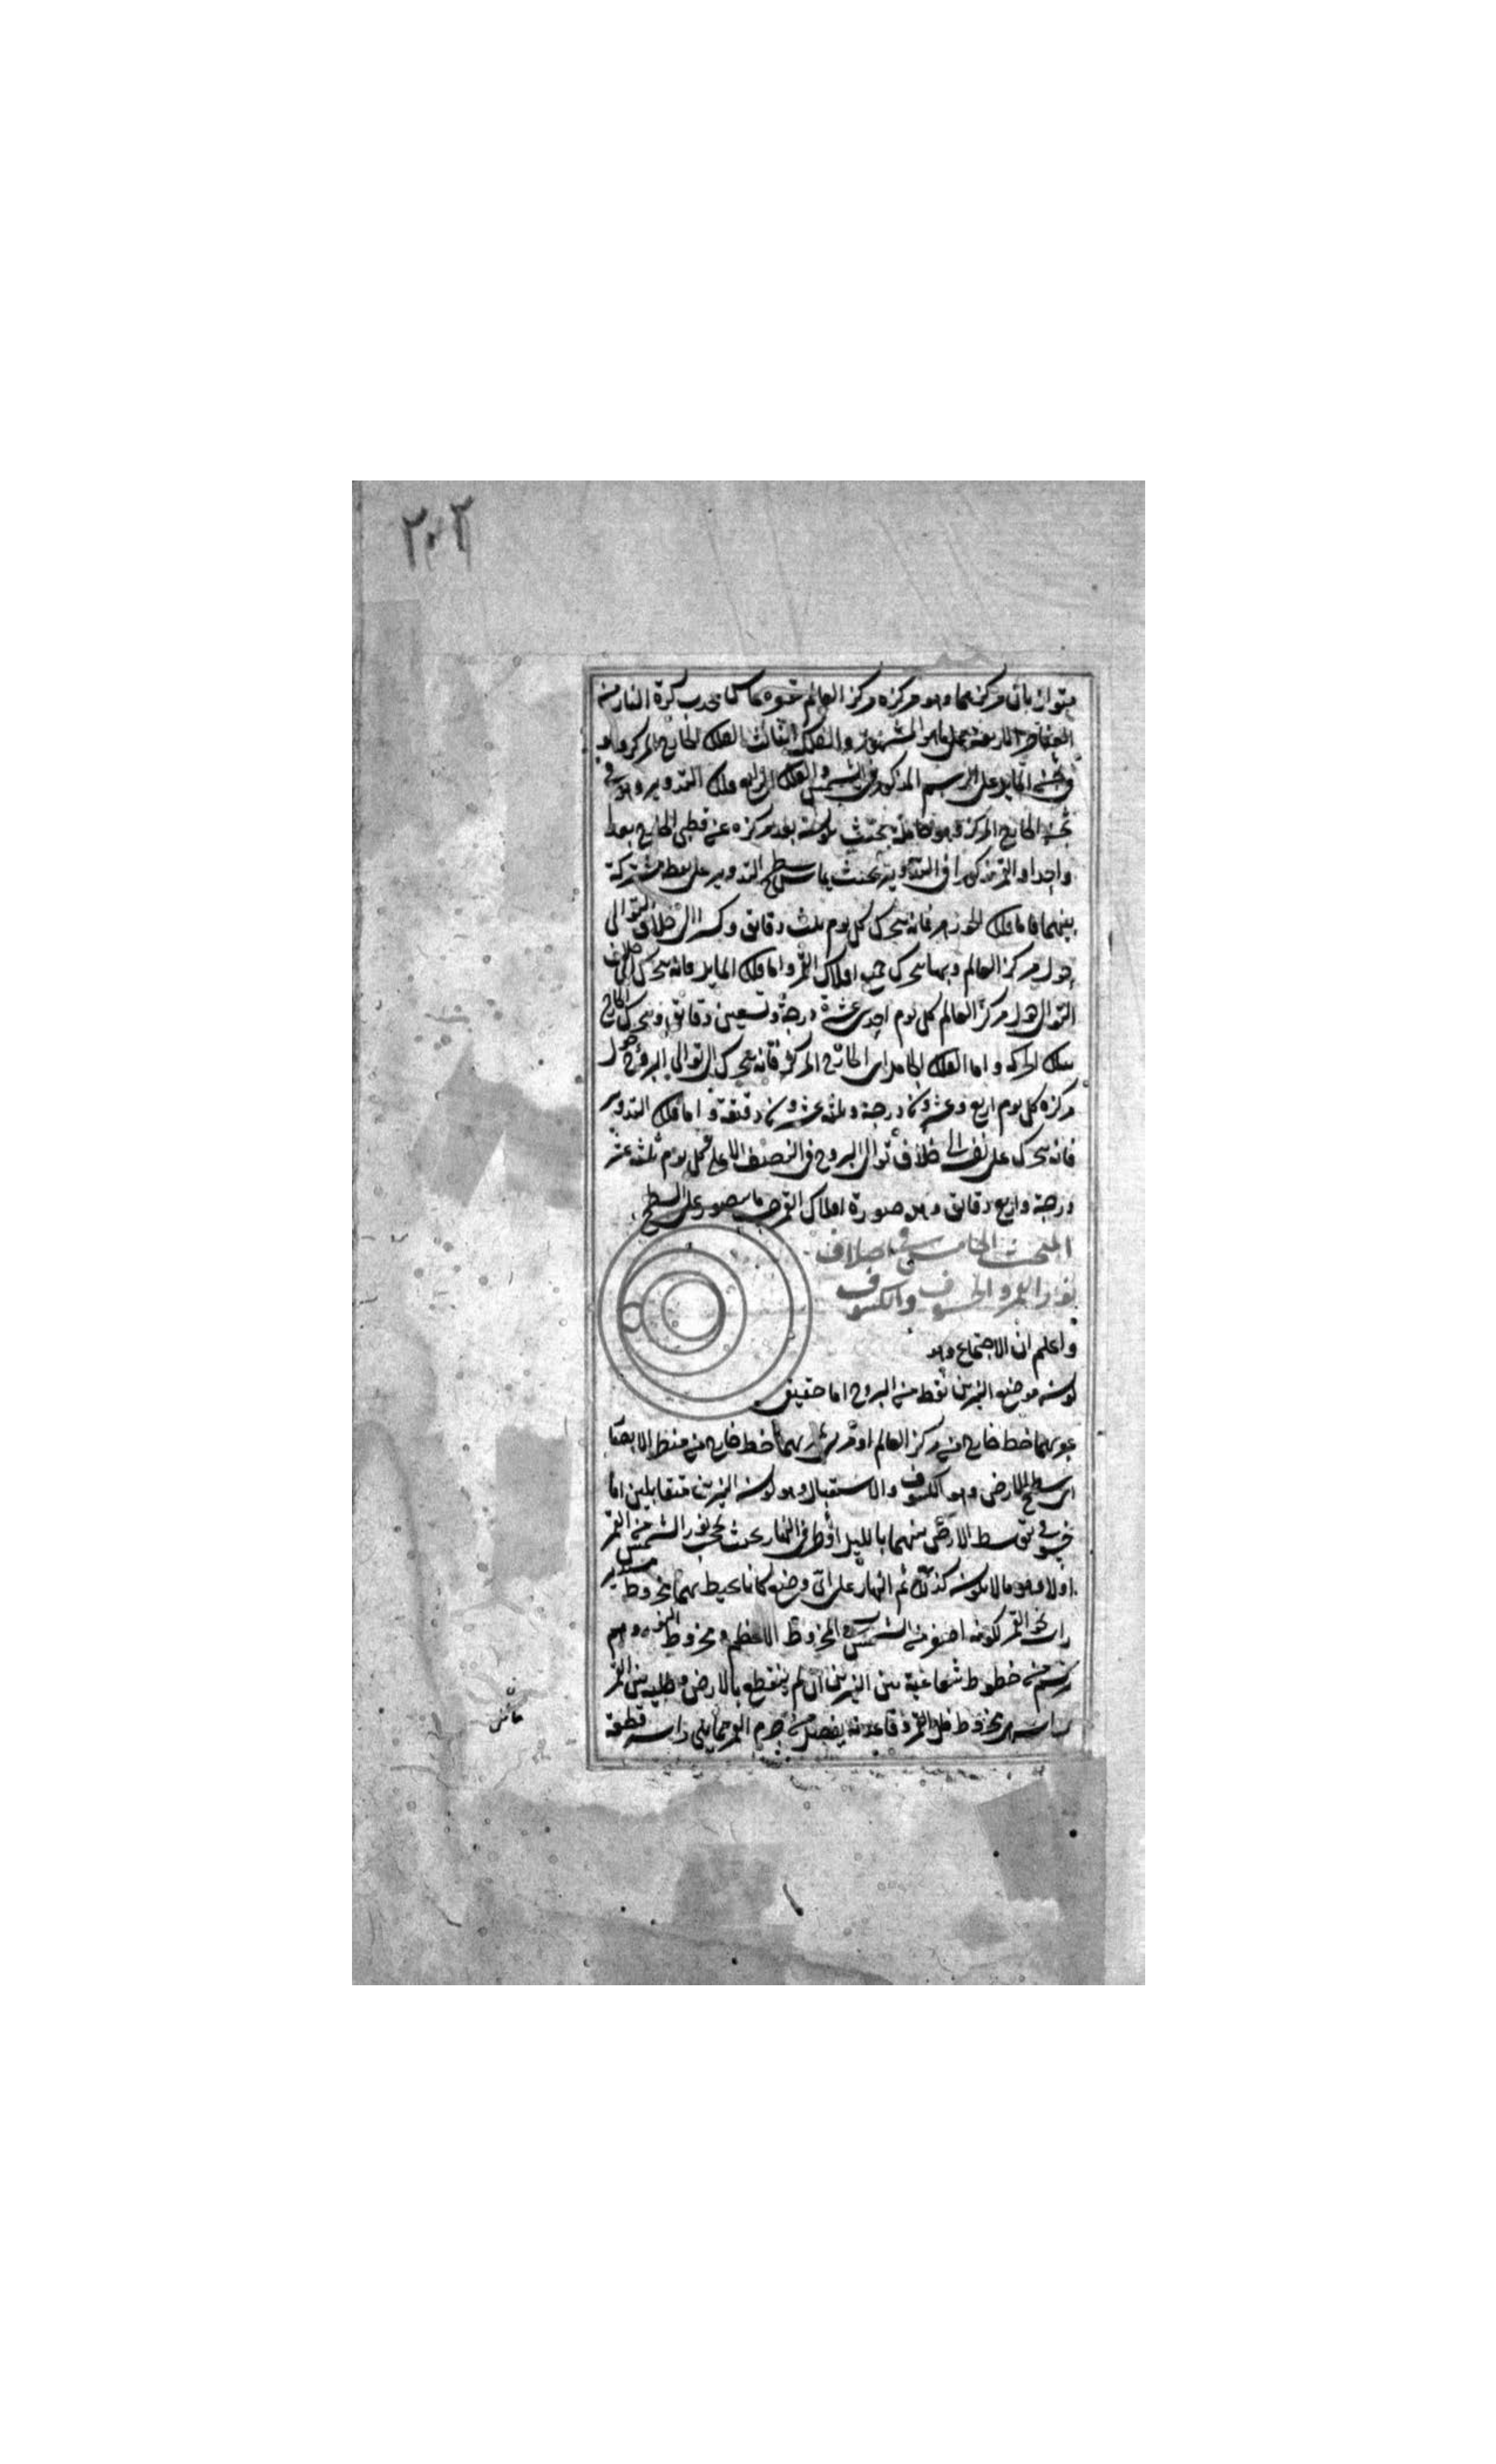 ٢٠٢
متوازيان مركزهما وهو مركزه مركز العالم مقعره مماس محدب كرة النار من
العناصر الاربعة على ما هو المشهور والفلك الثالث الفلك الخارج المركز وهو
في ثخن المايل على الرسم المذكور في الشمس والفلك الرابع فلك التدوير وهو في
ثخن الخارج المركز وهو حامله بحيث يكون بعد مركزه عن قطبي الخارج بعدا
واحدا والقمر مركوز في التدوير بحيث يماس سطحه سطح التدوير على نقطة مشتركة
بينهما فاما فلك الجوزهر فانه يتحرك كل يوم ثلث دقايق وكسرا الى خلاف التوالي
حول مركز العالم وبها يتحرك جميع افلاك القمر واما فلك المايل فانه يتحرك الى خلاف
التوالي حول مركز العالم كل يوم احدى عشرة درجة وتسعين دقايق ويتحرك الخارج
بتلك الحركة واما الفلك الحامل اي الخارج المركز فانه يتحرك الى توالي البروج حول
مركزه كل يوم اربع وعشرون درجة وثلثة وعشرون دقيقة واما فلك التدوير
فانه يتحرك على نفسه الى خلاف توالي البروج في النصف الاعلى كل يوم ثلثة عشر
درجة واربع دقايق وهذه صورة افلاك القمر حسب ما يتصور على السطح
المبحث الخامس في اختلاف
نور القمر والخسوف والكسوف
واعلم ان الاجتماع وهو
كون موضع النيرين نقطة من البروج اما حقيقي
يمر بهما خط خارج من مركز العالم او مرئي يمر بهما خط خارج من منظر الابصار
اي سطح الارض وهو الكسوف والاستقبال وهو كون النيرين متقابلين اما
خسوفي بتوسط الارض بينهما بالليل او طرفي النهار بحيث يحجب نور الشمس عن القمر
اولا وهو ما لا يكون كذلك ثم النيران على اي وضع كانا يحيط بهما مخروط مستدير
راسه نحو القمر لكونه اصغر من الشمس يسمى المخروط الاعظم ومخروط النور وهو
يرتسم من خطوط شعاعية بين النيرين ان لم ينقطع بالارض وظله بين القمر
راسه هو مخروط ظل القمر وقاعدته يفصل من جرم القمر مما يلي راسه قطعة